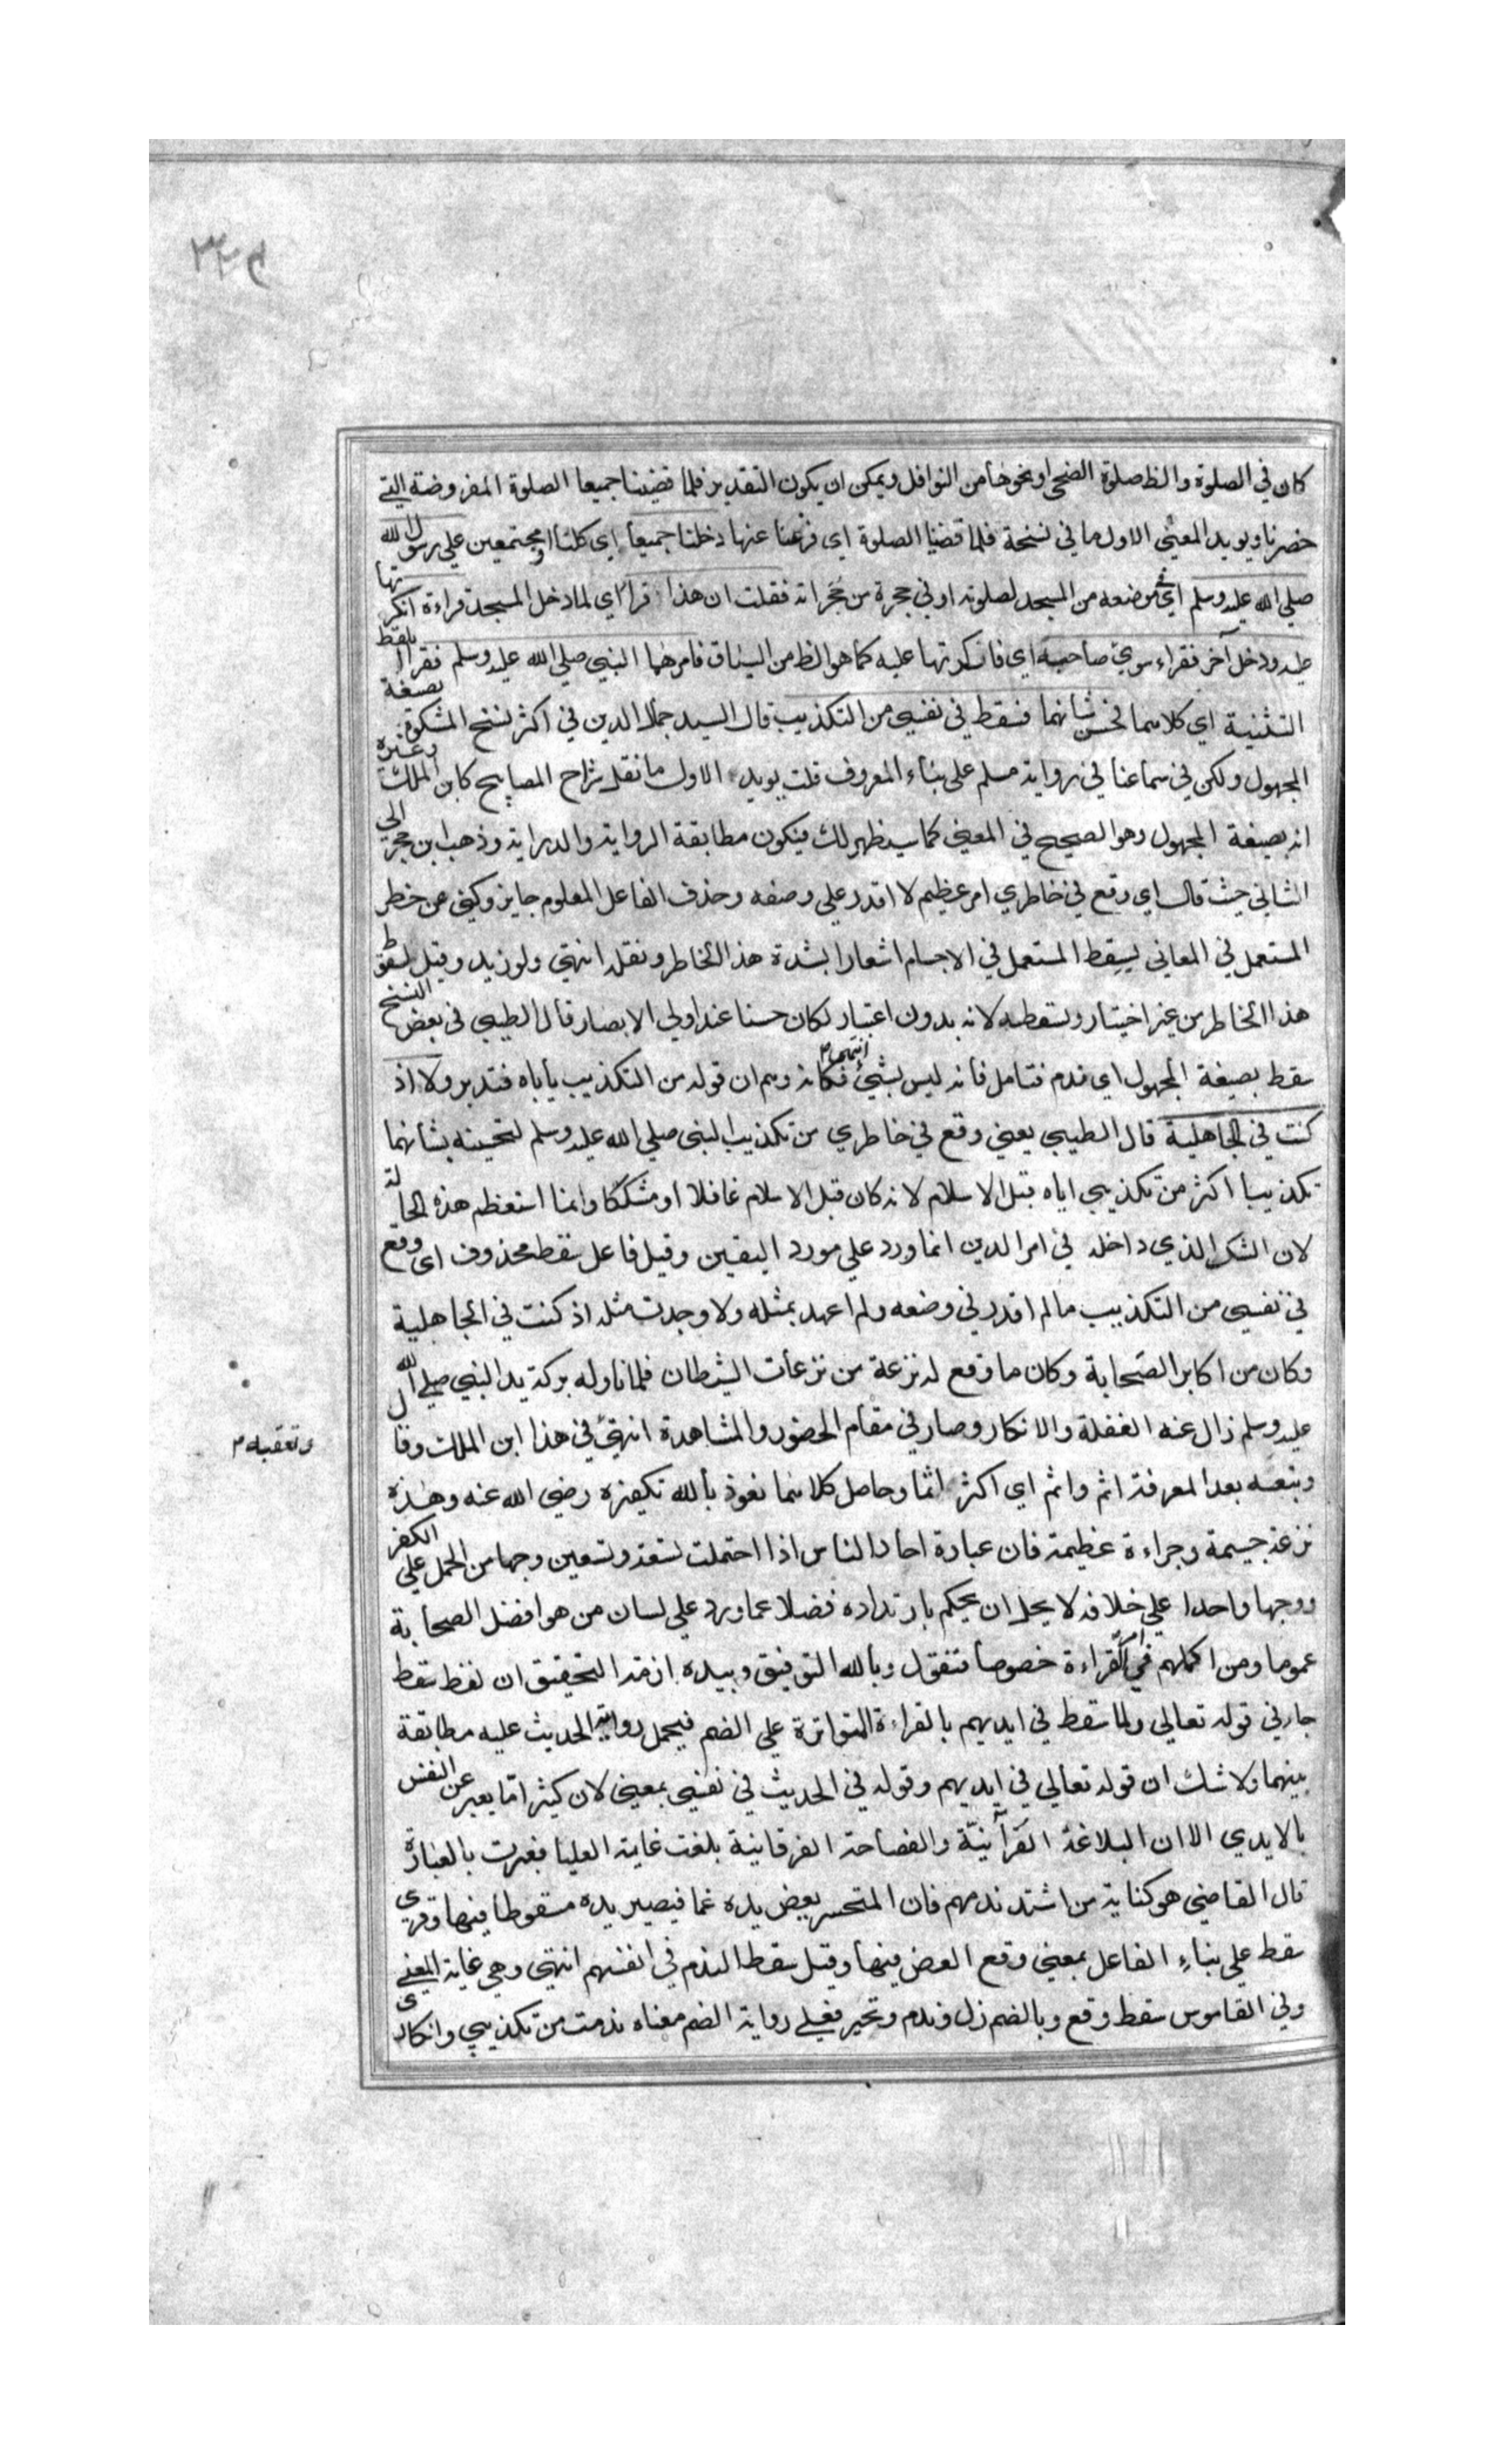 ٣٢٤
كان في الصلوة والظ صلوة الضحى او نحوها من النوافل ويمكن ان يكون التقدير فلما قضينا جميعا الصلوة المفروضة التي
حضرنا ويويد المعنى الاول ما في نسخة فلما قضينا الصلوة اى فرغنا عنها دخلنا جميعا اي كلنا او مجتمعين علي رسول الله
صلي الله عليه وسلم اي في موضعه من المسجد لصلوته او في حجرة من حجراته فقلت ان هذا قرا اي لما دخل المسجد قراءة انكرتها
عليه ودخل آخر فقراء سوي صاحبه اي فانكرتها عليه كما هو الظ من السياق فامرهما النبي صلي الله عليه وسلم فقرا بلفظ
التثنية اي كلاهما فحسن شانهما فسقط في نفسي من التكذيب قال السيد جمال الدين في اكثر نسخ المشكوة بصيغة
المجهول ولكن في سماعنا في رواية مسلم على بناء المعروف قلت يويد الاول ما نقله شراح المصابيح كابن الملك وغيره
انه بصيغة المجهول وهو الصحيح في المعنى كما سيظهر لك فيكون مطابقة الرواية والدراية وذهب ابن حجر الى
الثاني حيث قال اي وقع في خاطري امر عظيم لا اقدر علي وصفه وحذف الفاعل المعلوم جايز وكني عن خطر
المستعمل في المعاني بسقط المستعمل في الاجسام اشعارا بشدة هذا الخاطر وثقله انتهى ولو زيد وقيل لسقوط
هذا الخاطر من غير اختيار وتسقطه لانه بدون اعتبار لكان حسنا عند اولي الابصار قال الطيبي في بعض النسخ
سقط بصيغة المجهول اي ندم فتامل فانه ليس بشيئ انتهى فكانه وهم ان قوله من التكذيب ياباه فتدبر ولا اذ
كنت في الجاهلية قال الطيبي يعني وقع في خاطري من تكذيب النبي صلي الله عليه وسلم لتحسينه بشانهما
تكذيبا اكثر من تكذيبي اياه قبل الاسلام لانه كان قبل الاسلام غافلا او مشككا وانما استعظم هذه الحالة
لان الشك الذي داخله في امر الدين انما ورد علي مورد اليقين وقيل فاعل سقط محذوف اى وقع
في نفسي من التكذيب ما لم اقدر في وضعه ولم اعهد بمثله ولا وجدت مثله اذ كنت في الجاهلية
وكان من اكابر الصحابة وكان ما وقع له نزعة من نزعات الشيطان فلما ناوله بركة يد النبي صلي الله
عليه وسلم زال عنه الغفلة والانكار وصار في مقام الحضور والمشاهدة انتهى في هذا ابن الملك وقال
وتعقبه م
وتبعه بعد المعرفة اثم واثم اي اكثر اثما وحاصل كلامهما نعوذ بالله تكفيره رضي الله عنه وهذه
نزعة جسيمة وجراءة عظيمة فان عبارة احاد الناس اذا احتملت تسعة وتسعين وجها من الحمل على الكفر
ووجها واحدا علي خلافه لا يحل ان يحكم بارتداده فضلا عما ورد علي لسان من هو افضل الصحابة
عموما ومن اكملهم في امر القراءة خصوصا فنقول وبالله التوفيق وبيده ازمة التحقيق ان لفظ سقط
جاء في قوله تعالي ولما سقط في ايديهم بالقراءة المتواترة علي الضم فيحمل رواية الحديث عليه مطابقة
بينهما ولا شك ان قوله تعالي في ايديهم وقوله في الحديث في نفسي بمعنى لان كثيرا ما يعبر عن النفس
بالايدي الا ان البلاغة القرآنية والفصاحة الفرقانية بلغت غاية العليا فعبرت بالعبارة
قال القاضي هو كناية من اشتد ندمهم فان المتحسر يعض يده غما فيصير يده مسقوطا فيها وقرى
سقط علي بناء الفاعل بمعنى وقع العض فيها وقيل سقط الندم في انفسهم انتهى وهي غاية المعنى
وفي القاموس سقط وقع وبالضم زل وندم وتحير فعلي رواية الضم معناه ندمت من تكذيبي وانكارى